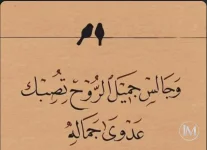 وَجَالِسْ جَمِيْلَ الرُّوْحِ تُصِبْكَ
عَدْوَىٰ جَمَالِهِ